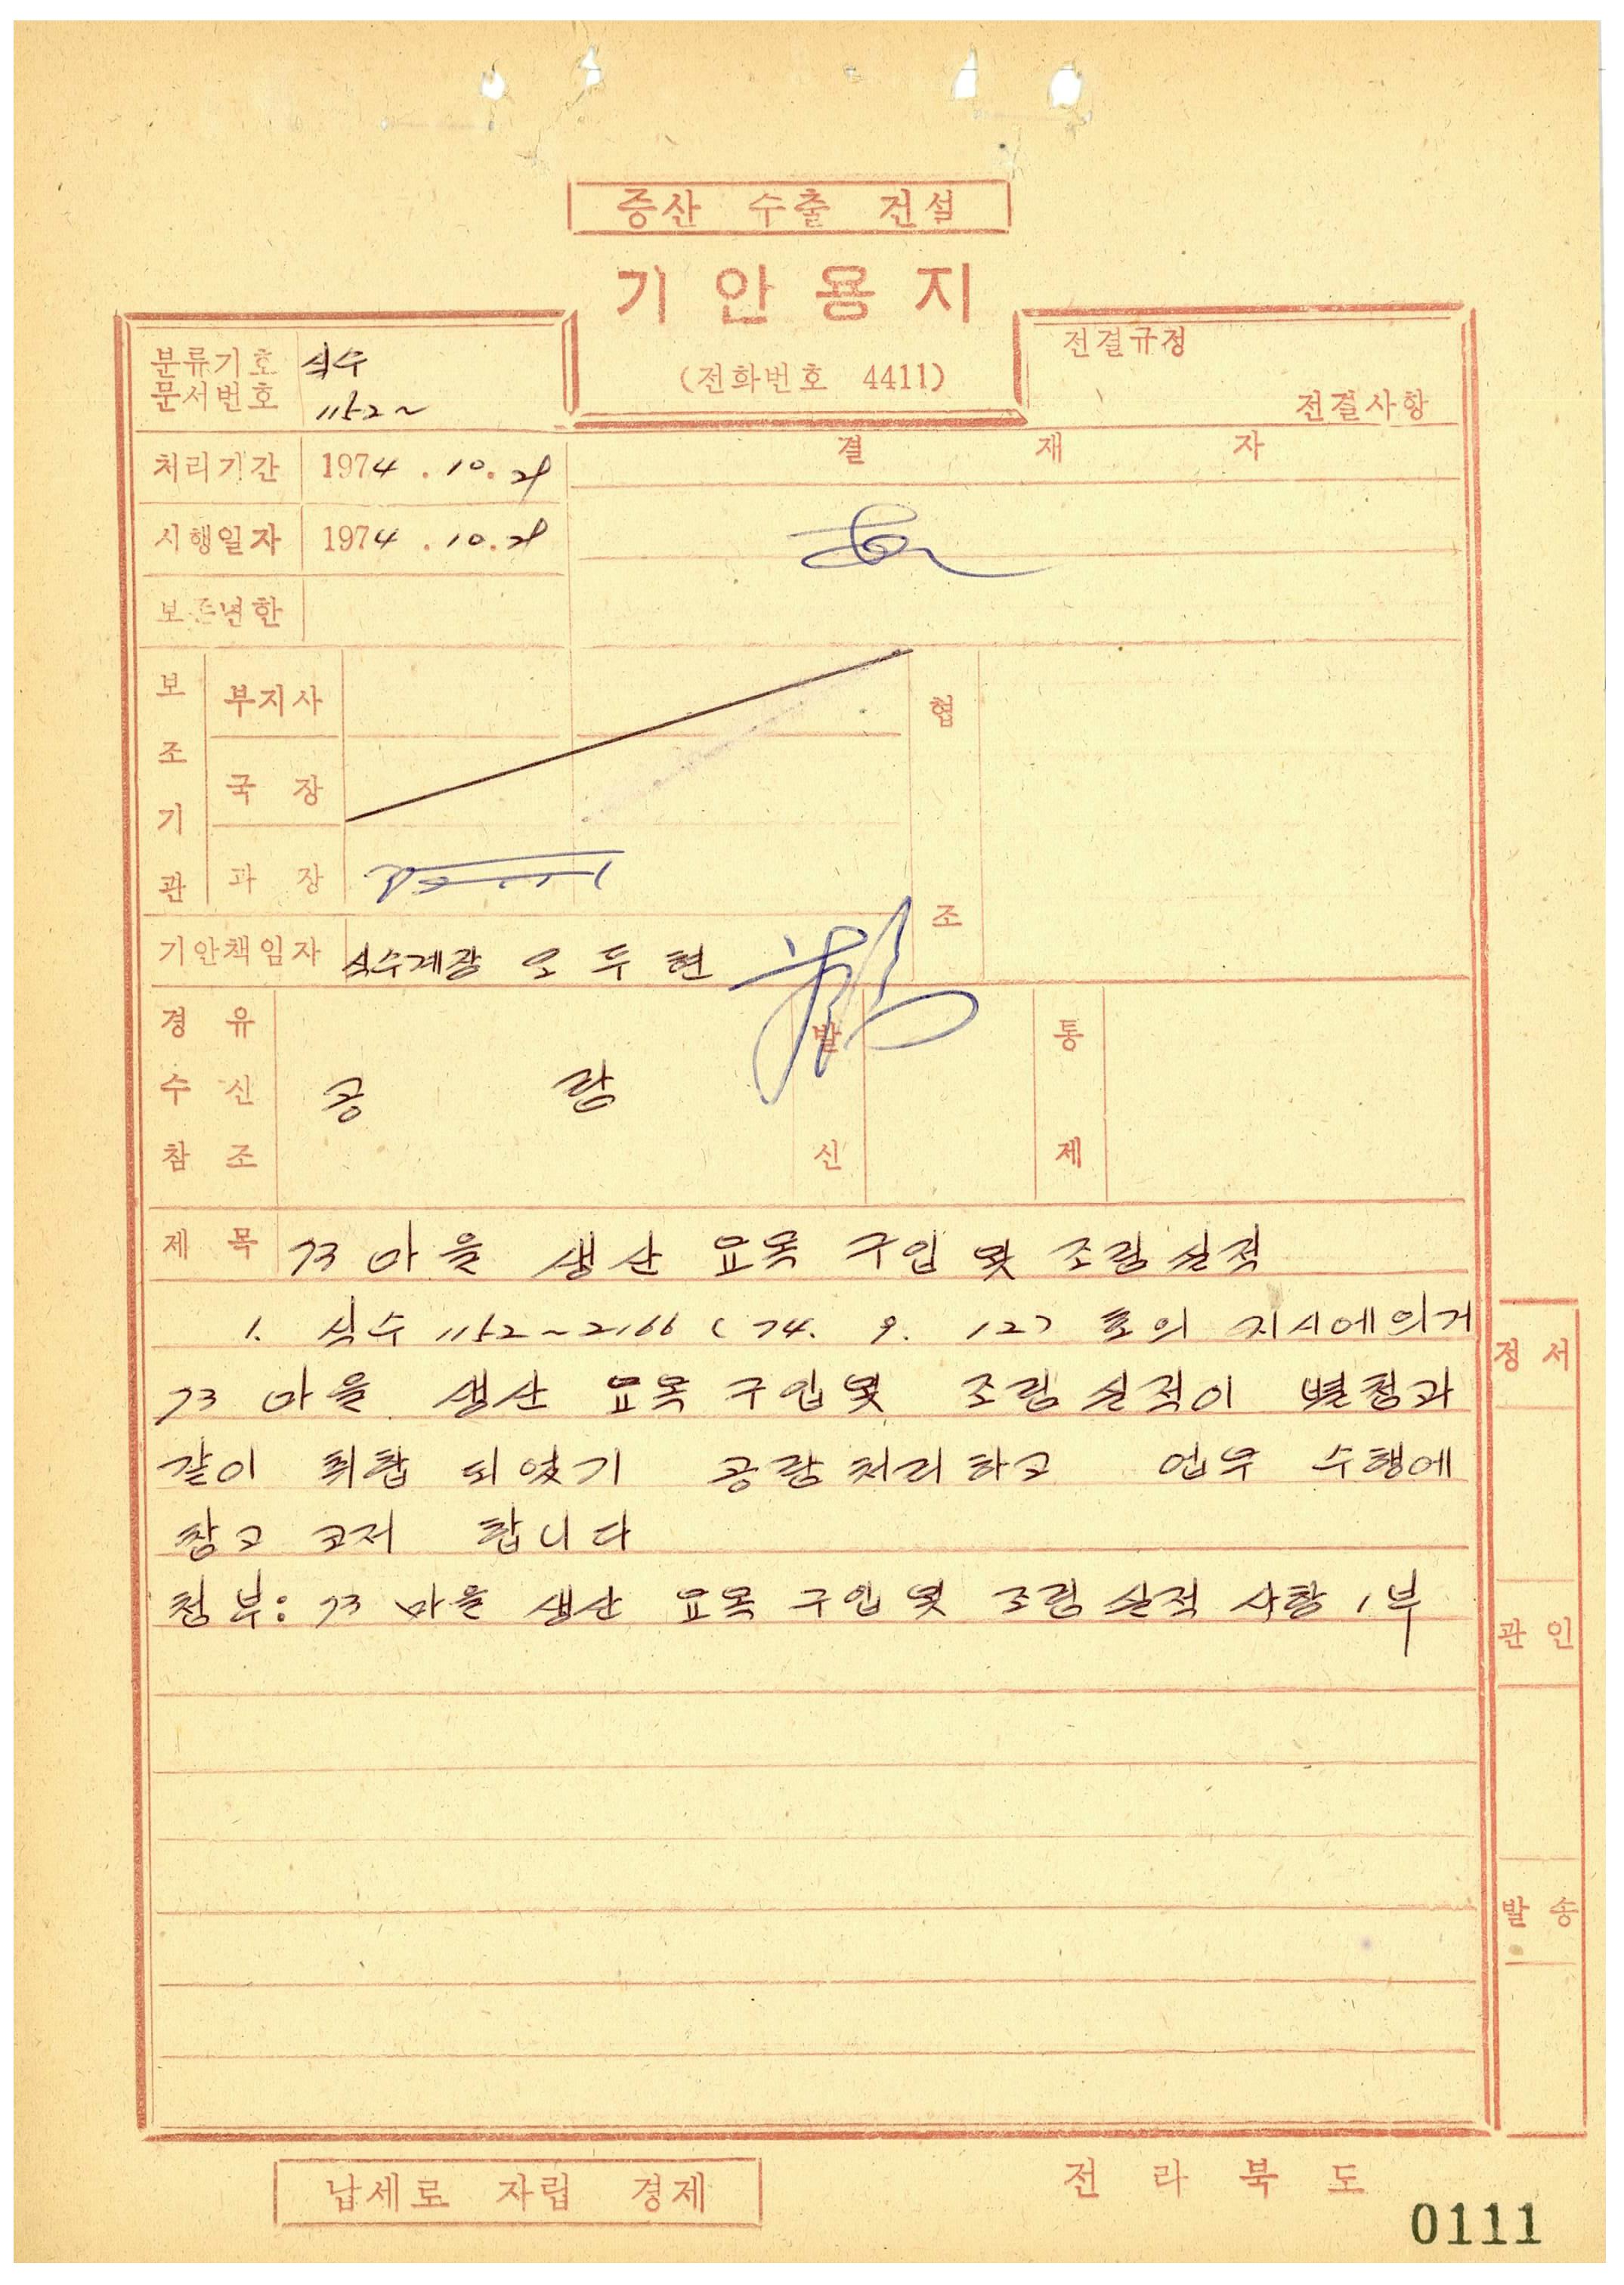 증산 수출 건설
기안용지
(전화번호 4411)
분류기호 식수
문서번호 1152~
전결규정
전결사항
처리기간 1974.10.
결 재 자
시행일자 1974.10.
보존년한
보조기관
부지사
국 장
과 장
협조
기안책임자 식수계장 오 두 현
경 유
수 신 공 람
참 조
발신
통제
제 목 73 마을 생산 묘목 구입 및 조림실적
1. 식수 1152~2166 (74. 9. 12) 호의 지시에의거
73 마을 생산 묘목 구입및 조림 실적이 별첨과
같이 취합 되었기 공람처리하고 업무 수행에
참고 코저 합니다
첨부: 73 마을 생산 묘목 구입 및 조림 실적 사항 1부
정 서
관 인
발 송
납세로 자립 경제
전 라 북 도
0111